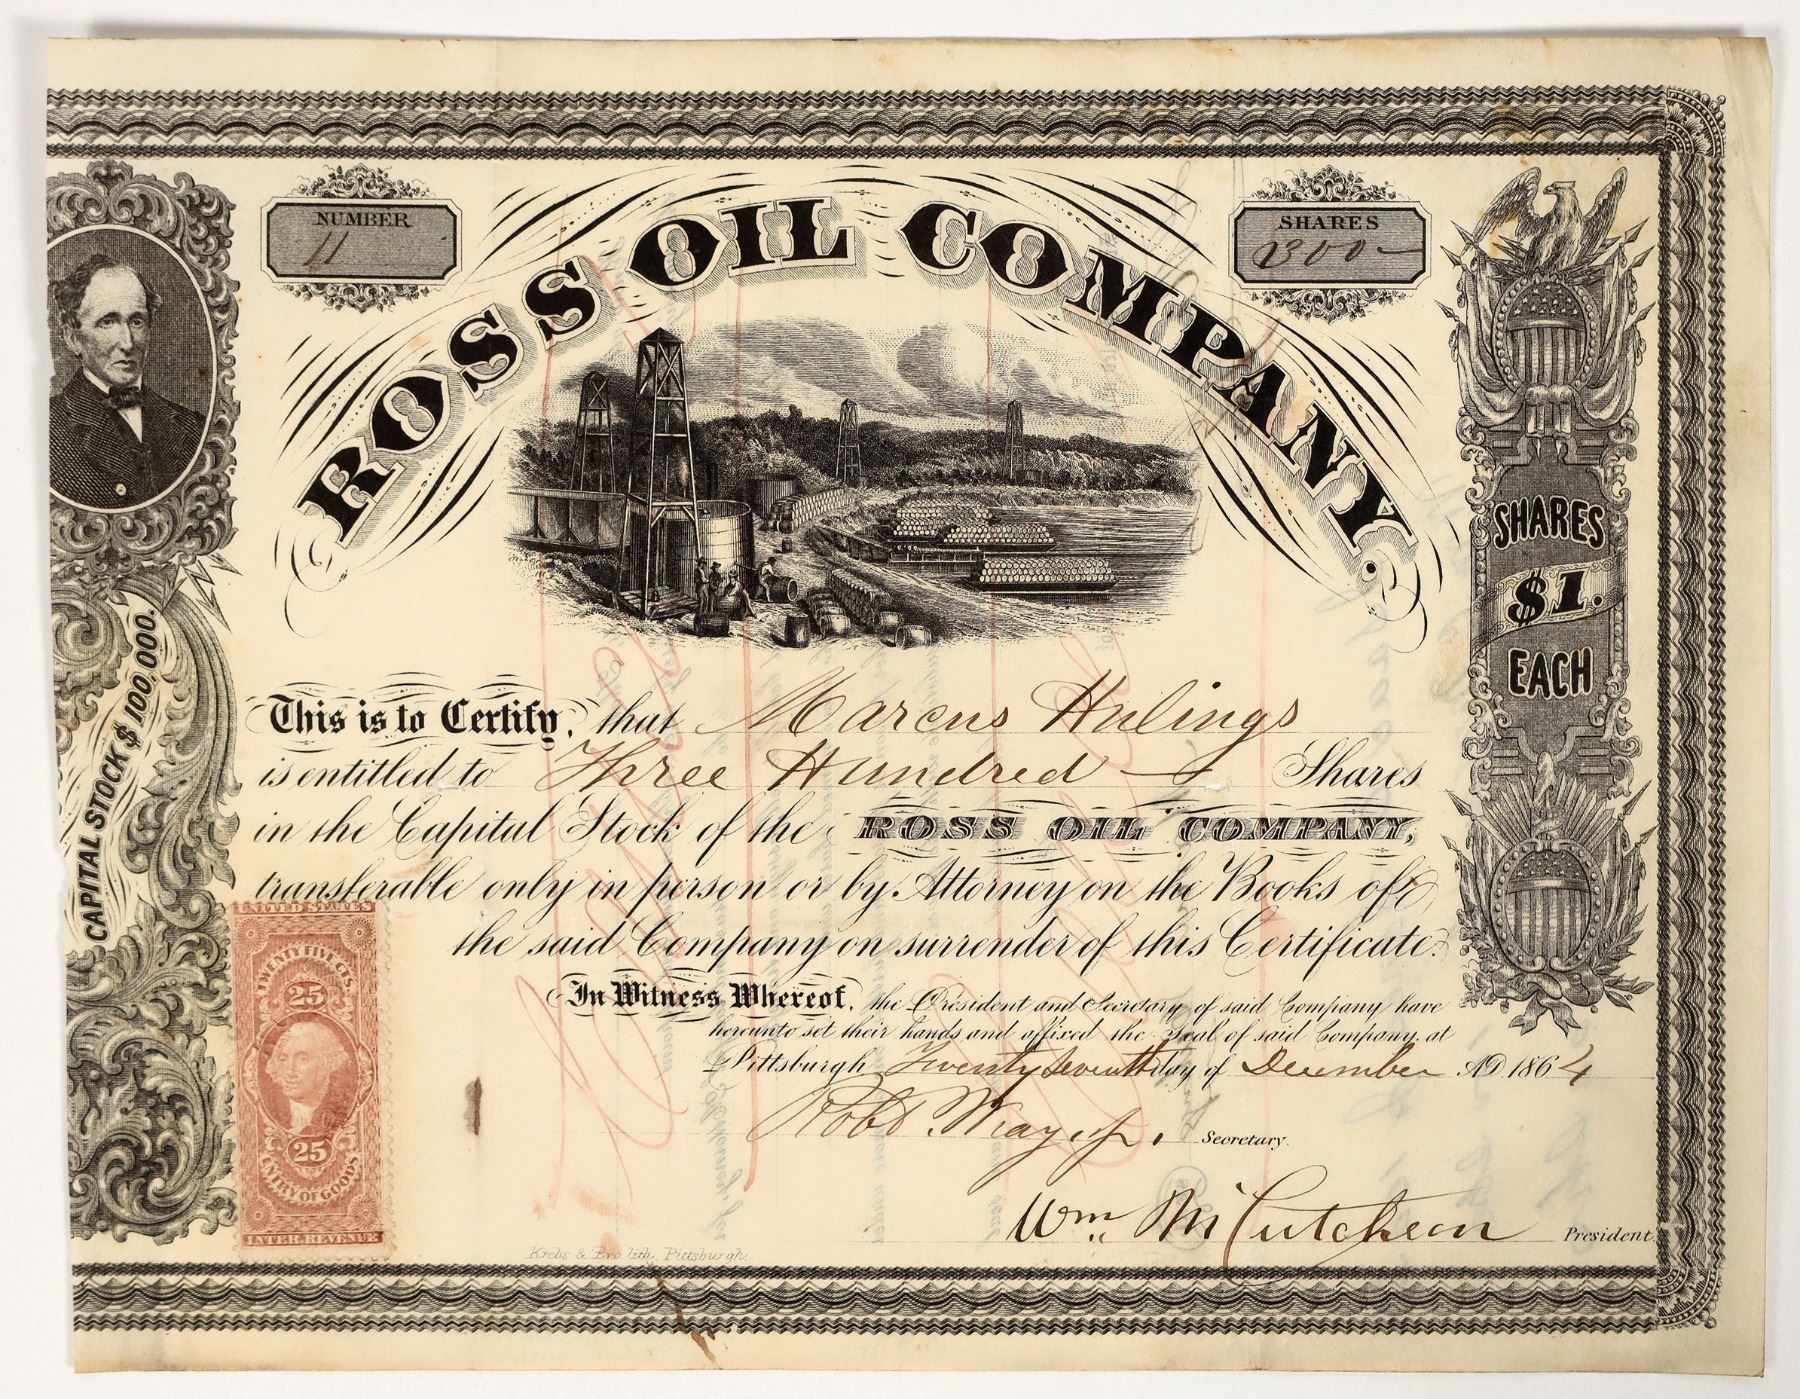 NUMBER
11
SHARES
300
ROSS OIL COMPANY
SHARES
$1.
EACH
CAPITAL STOCK $100,000.
This is to Certify, that Marcus Hulings
is entitled to Three Hundred Shares
in the Capital Stock of the ROSS OIL COMPANY,
transferable only in person or by Attorney on the Books of
the said Company on surrender of this Certificate.
In Witness Whereof, the President and Secretary of said Company have
hereunto set their hands and affixed the Seal of said Company, at
Pittsburgh Twenty seventh day of December AD. 1864
Robt. Wray, Jr. Secretary.
Wm. McCutcheon President.
UNITED STATES
TWENTY FIVE CTS
25
25
ENTRY OF GOODS
INTER. REVENUE
Krebs & Bro lith. Pittsburgh.